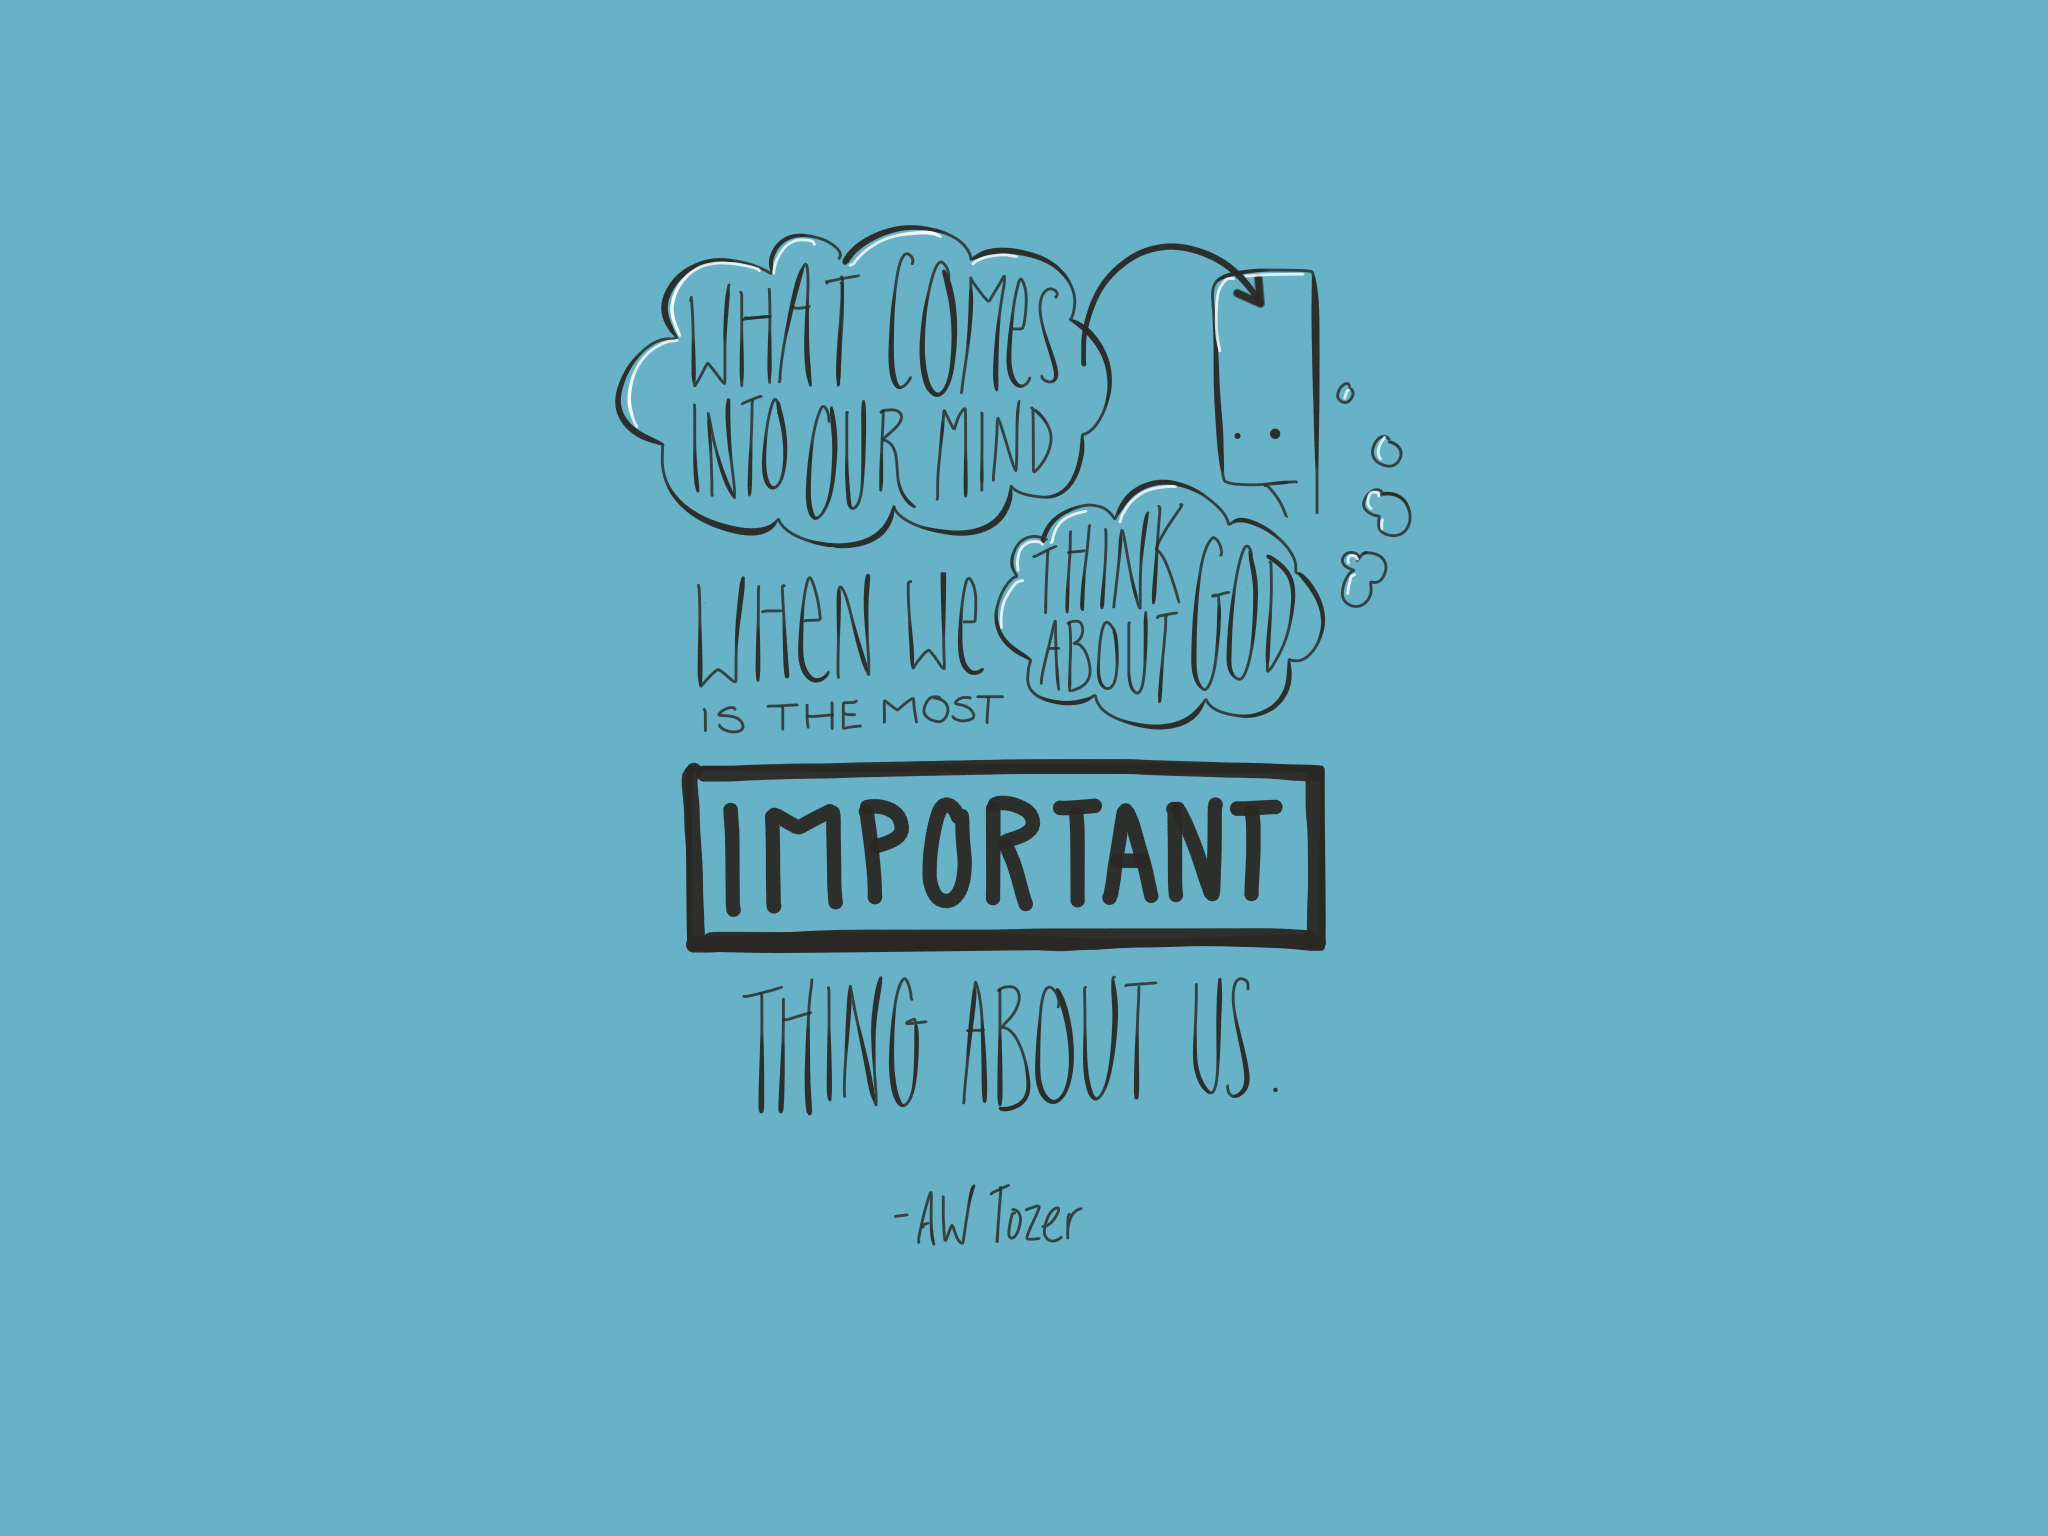 WHAT COMeS
INTO OUR MIND
WHeN We
THINK
ABOUT GOD
IS THE MOST
IMPORTANT
THING ABOUT US.
-AW Tozer